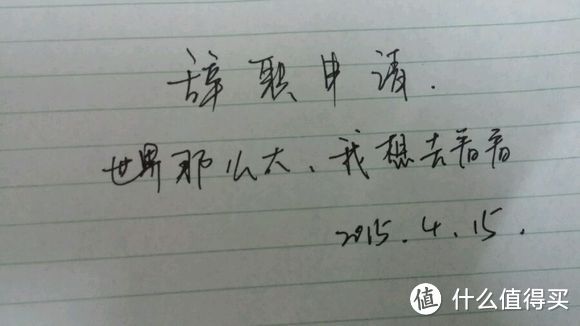 辞职申请.
世界那么大、我想去看看
2015.4.15.
值 什么值得买